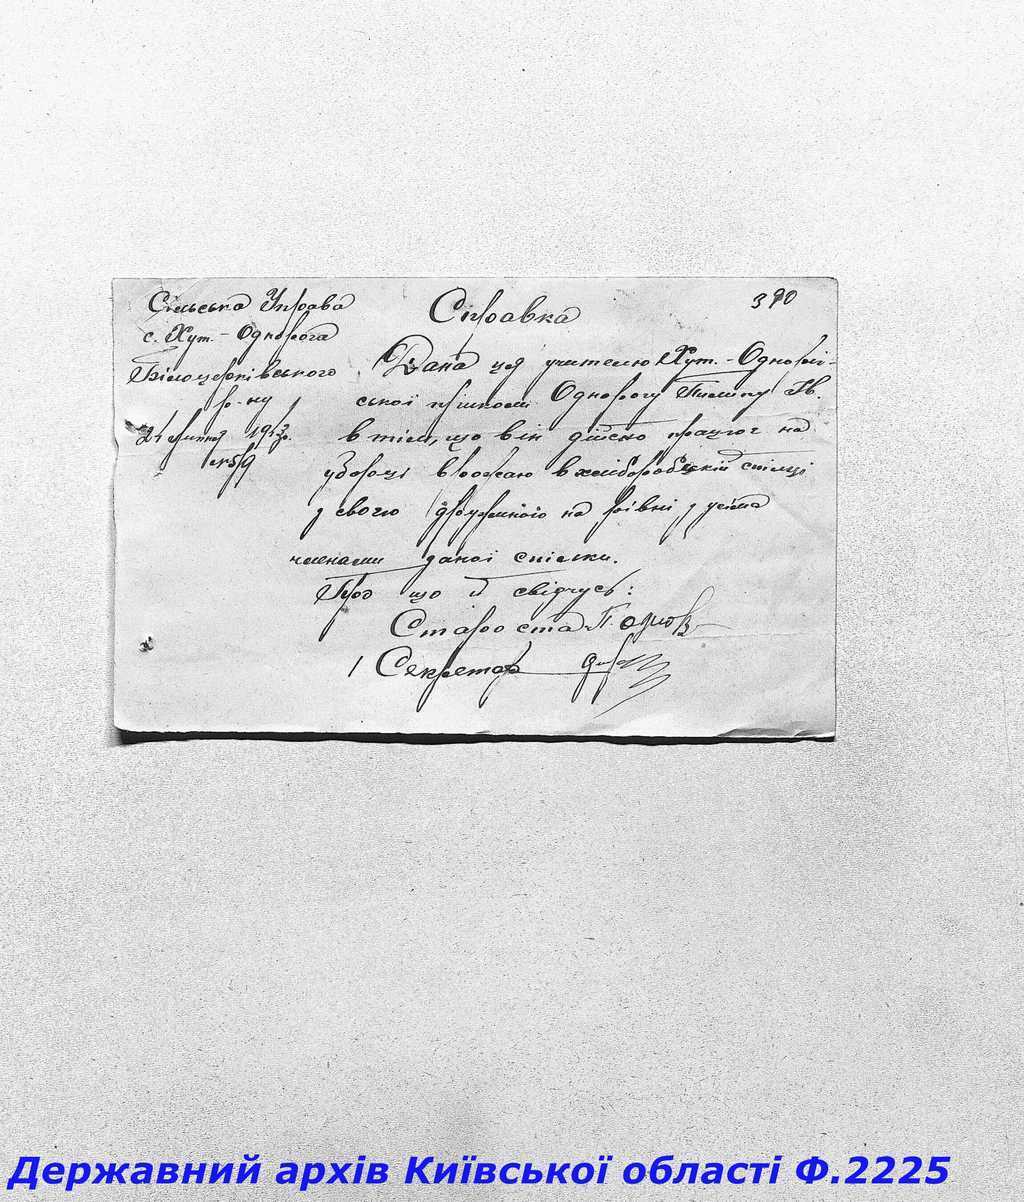 390
Сільська Управа
с. Хут.-Однорога
Білоцерківського
р-ну
24 липня 1943р.
№59
Справка
Дана ця учителю Хут.-Одноріз-
ської школи Однорогу Пилипу Ів.
в тім, що він дійсно працює на
уборці врожаю в хліборобській спілці
з своєю дружиною на рівні з усіма
членами даної спілки.
Про що й свідчусь:
Староста
Секретар
Державний архів Київської області Ф.2225